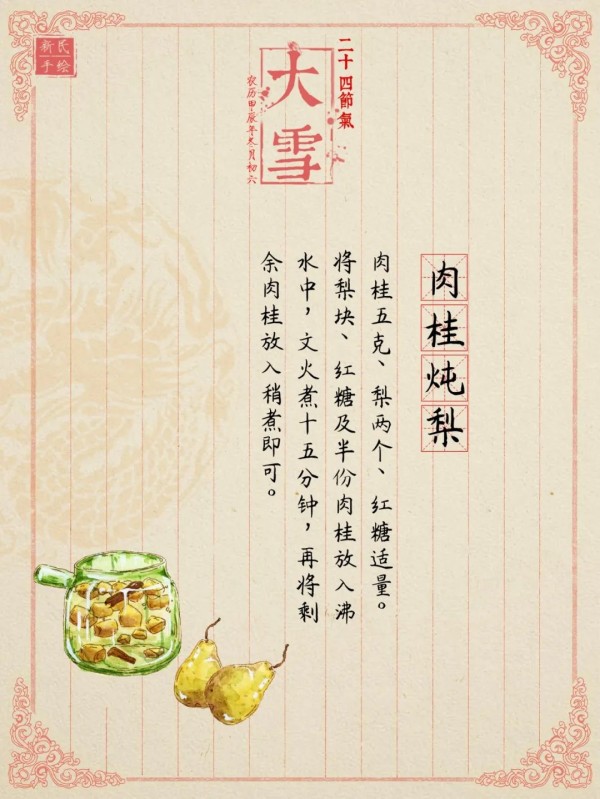 新氏
手绘
二十四節氣
大雪
农历甲辰年冬月初六
肉桂炖梨
肉桂五克、梨两个、红糖适量。
将梨块、红糖及半份肉桂放入沸
水中，文火煮十五分钟，再将剩
余肉桂放入稍煮即可。